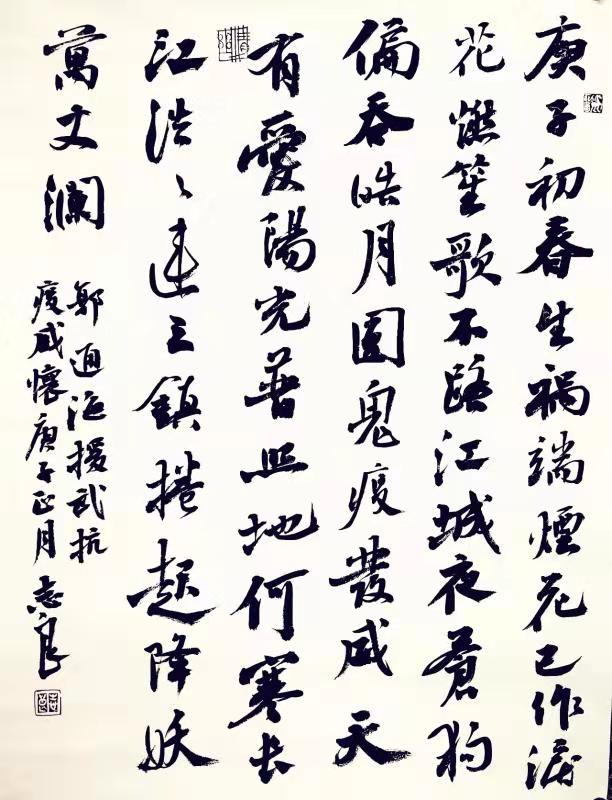 庚子初春生禍端煙花已作淚
花燃笙歌不踏江城夜蒼狗
偏吞皓月圓鬼疫發威天
有愛陽光普照地何寒長
江浩〻連三鎮捲起降妖
萬丈瀾
鄭通海援武抗
疫感懷庚子正月志良